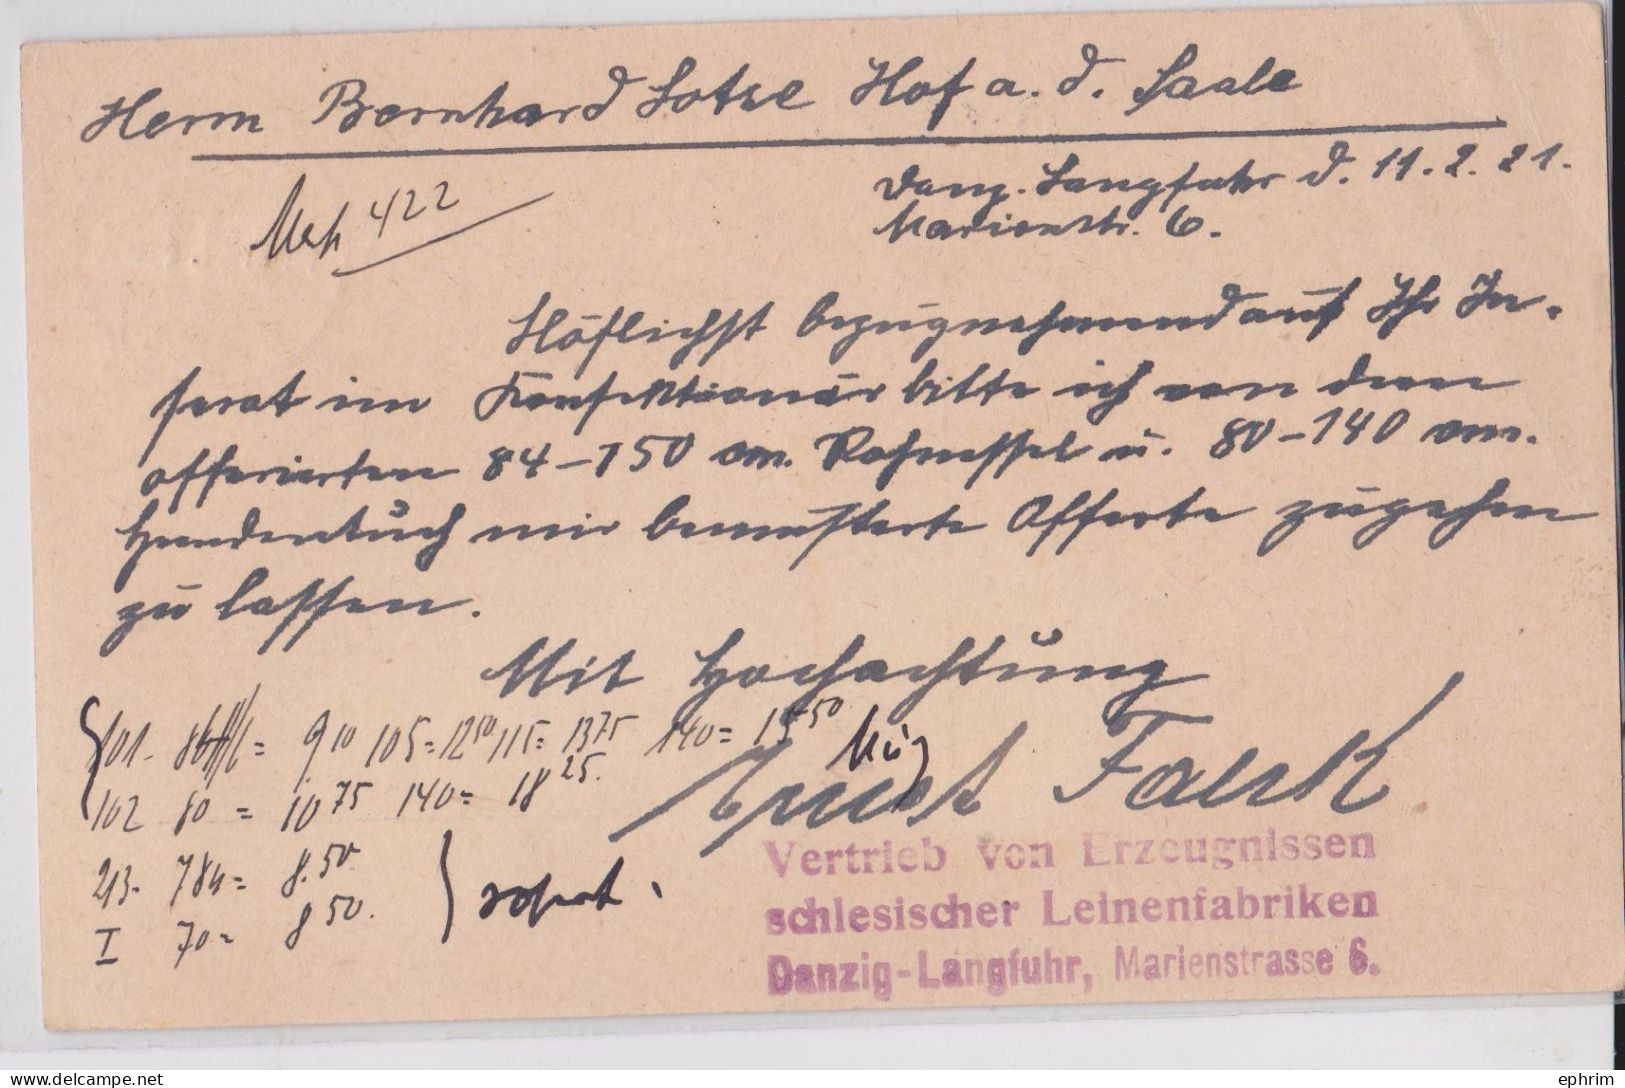 Herrn Bernhard Lotze Hof a. d. Saale
Danz. Langfuhr d. 11.2.21.
Marienstr. 6.
422
Höflichst bezugnehmend auf Ihr In-
serat im Konfektionär bitte ich von den
offerierten 84-150 cm. Rohnessel u. 80-140 cm.
Hemdentuch mir bemusterte Offerte zugehen
zu lassen.
Mit Hochachtung
Ernst Faerk
101- 86 = 9 10 105 = 12 50 115 = 13 75 140 = 15 50
102 80 = 10 75 140 = 18 25.
213- 784 = 8.50.
I 70 = 8 50.
sofort.
Vertrieb von Erzeugnissen
schlesischer Leinenfabriken
Danzig-Langfuhr, Marienstrasse 6.
ephrim